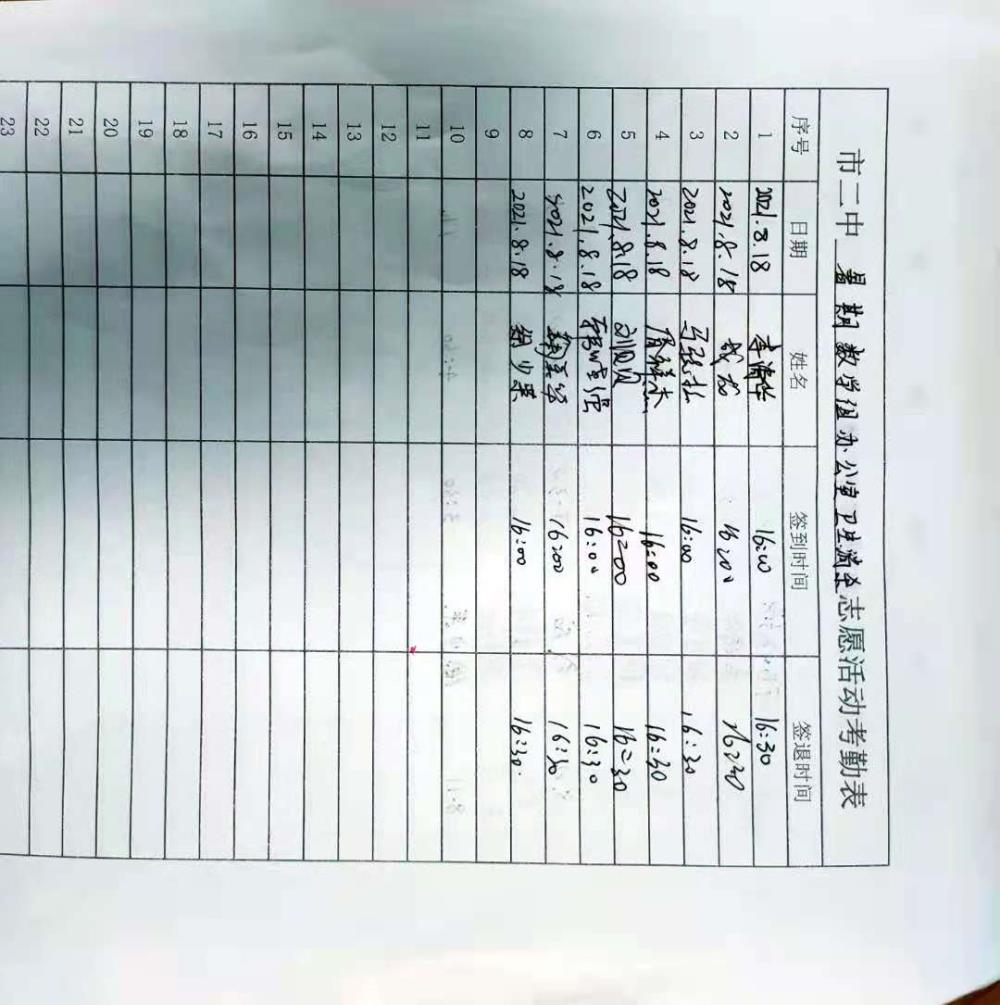 市二中 暑期数学组办公室卫生消杀志愿活动考勤表
序号 日期 姓名 签到时间 签退时间
1 2021.8.18 李清华 16:00 16:30
2 2021.8.18 16:00 16:30
3 2021.8.18 16:00 16:30
4 2021.8.18 16:00 16:30
5 2021.8.18 16:00 16:30
6 2021.8.18 16:00 16:30
7 2021.8.18 16:00 16:30
8 2021.8.18 16:00 16:30.
9
10
11
12
13
14
15
16
17
18
19
20
21
22
23